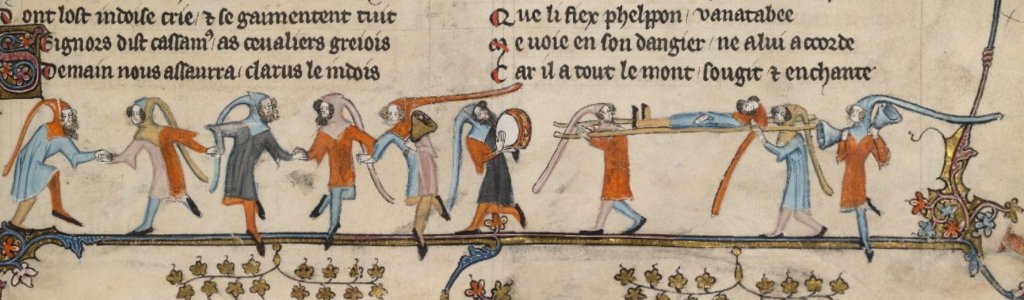 Dont lost indoise crie / ⁊ se gaimentent tuit
Signors dist cassamꝰ / as ceualiers greiois
Demain nous assaurra / clarus le indois
Que li fiex phelppon / uanatabee
Me uoie en son dangier / ne a lui accorde
Car il a tout le mont / sougit ⁊ enchante